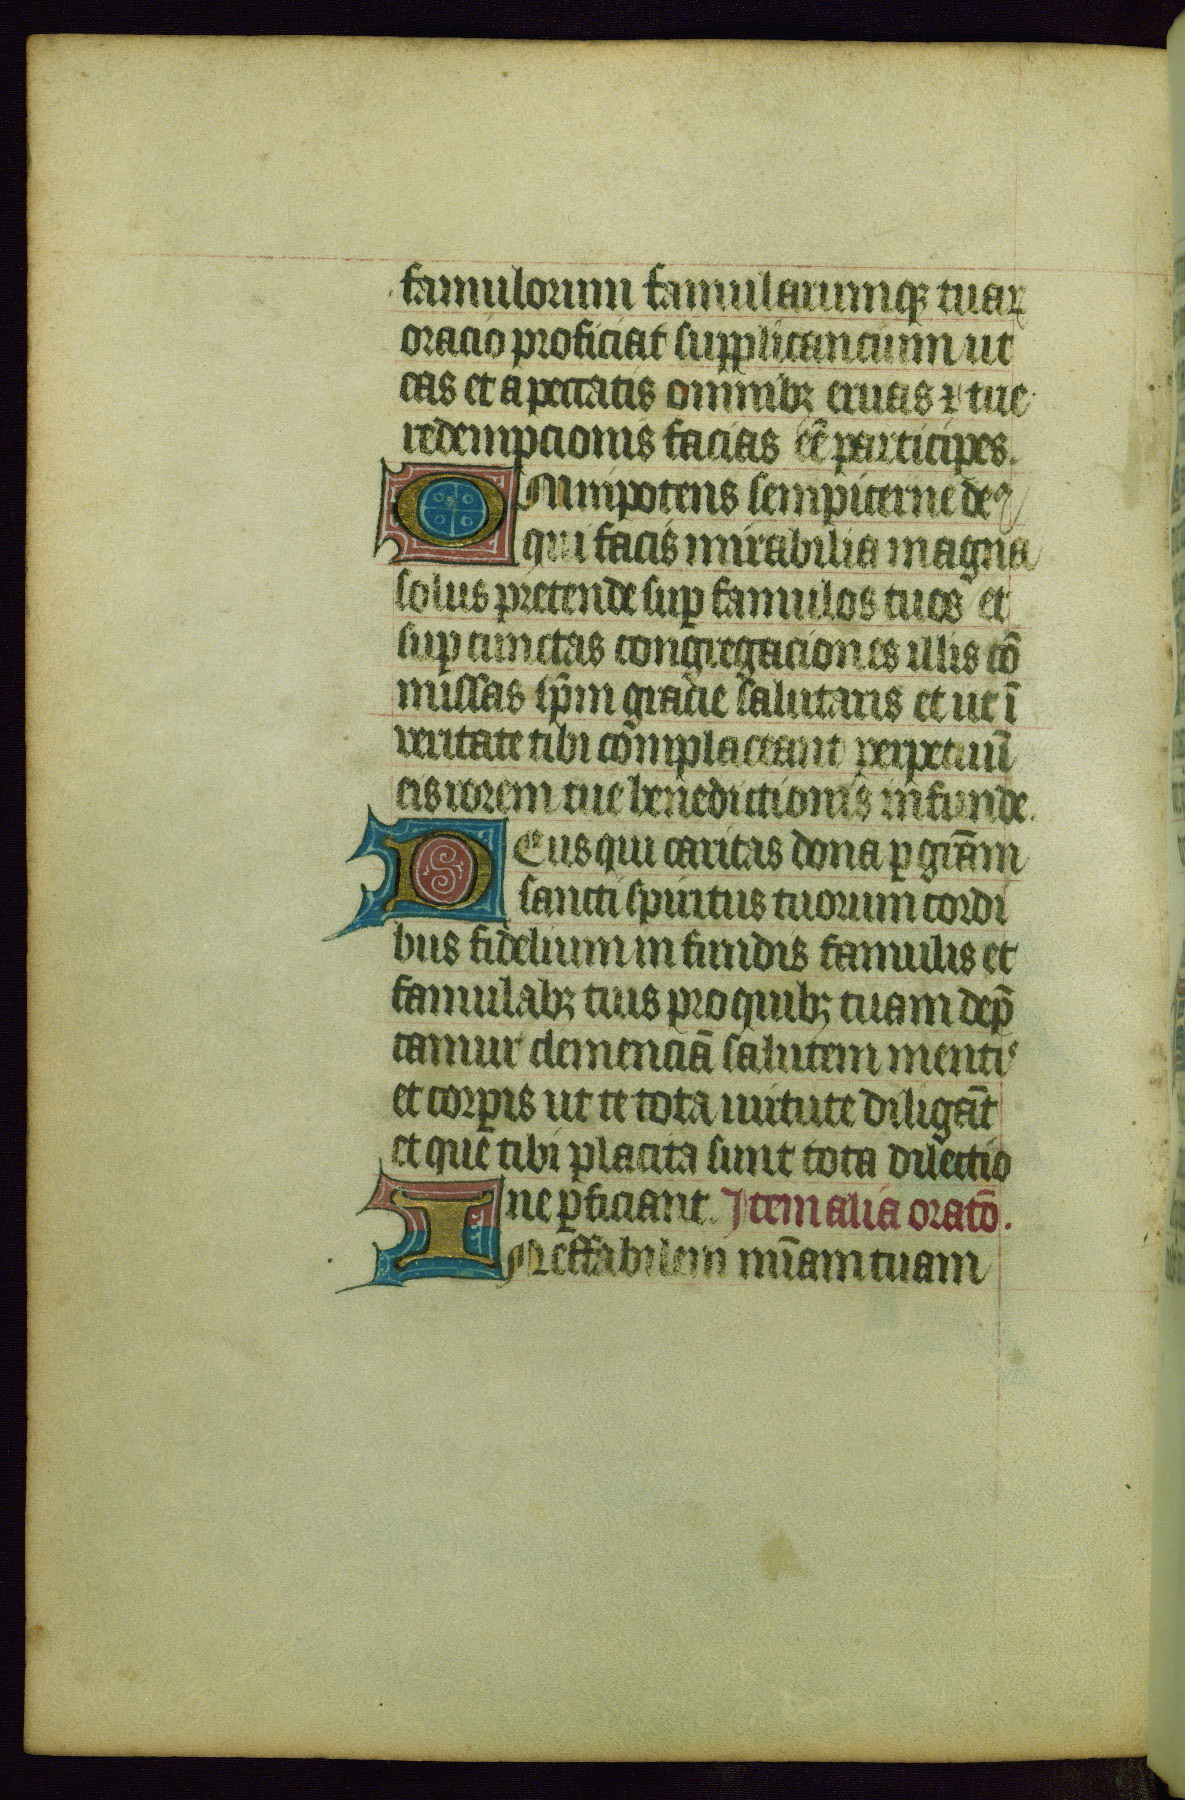 famulorum famularumqꝫ tuaꝝ
oracio proficiat supplicancium ut
eas et a peccatis omnibꝫ eruas ⁊ tue
redempcionis facias eē participes.
OMnipotens sempiterne deꝰ
qui facis mirabilia magna
solus pretende suꝑ famulos tuos et
suꝑ cunctas congregaciones illis cō
missas sp̄m gracie salutaris et ut ī
veritate tibi cōmplaceant perpetuū
eis rorem tue benedictionis infunde.
DEus qui caritas dona ꝑ grām
sancti spiritus tuorum cordi
bus fidelium infundis famulis et
famulabꝫ tuis pro quibꝫ tuam dep̄
camur clemenciā salutem mentis
et corꝑis ut te tota uirtute diligāt
et que tibi placita sunt tota dilectio
ne ꝑficiant. Item alia oratō.
INeffabilem mīam tuam